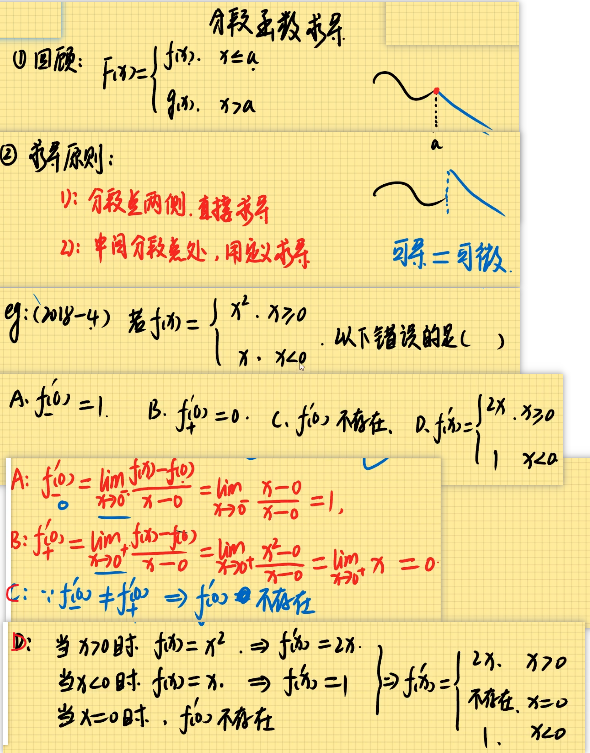 分段函数求导
① 回顾: F(x)={ f(x). x≤a
g(x). x>a
a
② 求导原则:
1): 分段点两侧.直接求导
2): 中间分段点处,用定义求导
可导=可微.
eg:(2018-4) 若f(x)={ x². x≥0
x. x<0 . 以下错误的是( )
A. f'₋(0)=1. B. f'₊(0)=0. C. f'(0)不存在、 D. f'(x)={ 2x .x≥0
1 x<0
A: f'₋(0)=lim_{x→0⁻} (f(x)-f(0))/(x-0) = lim_{x→0⁻} (x-0)/(x-0) =1,
B: f'₊(0)=lim_{x→0⁺} (f(x)-f(0))/(x-0) = lim_{x→0⁺} (x²-0)/(x-0) = lim_{x→0⁺} x = 0
C: ∵f'₋(0)≠f'₊(0) ⇒ f'(0)不存在
D: 当x>0时. f(x)=x². ⇒ f'(x)=2x.
当x<0时. f(x)=x. ⇒ f'(x)=1
当x=0时., f'(0)不存在
} ⇒ f'(x)={ 2x. x>0
不存在. x=0
1. x<0